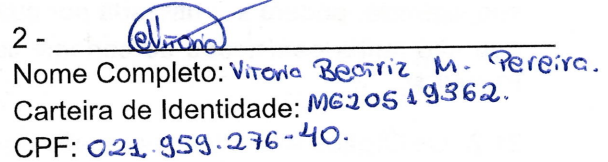 2 - eVitoria
Nome Completo: Vitoria Beatriz M. Pereira.
Carteira de Identidade: MG20519362.
CPF: 021.959.276-40.